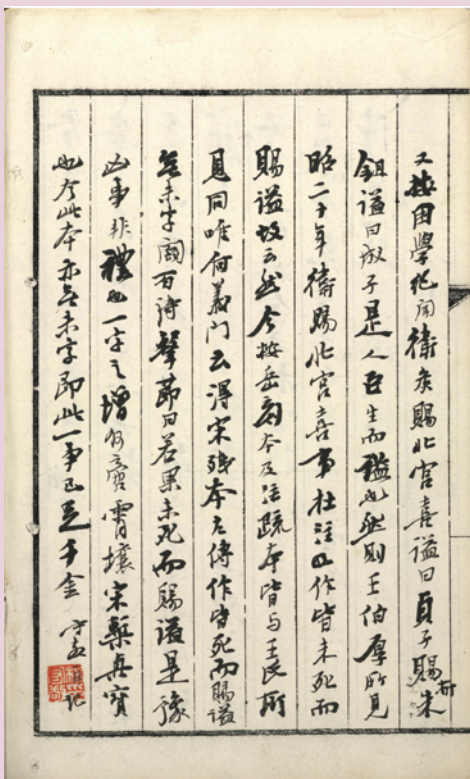 又按困學紀聞衛侯賜北宮喜謚曰貞子賜析朱
鉏謚曰成子是人臣生而謚也然則王伯厚所見
昭二十年衛賜北宮喜事杜注作皆未死而
賜謚故云然今按岳刻本及注疏本皆與王氏所
見同唯何義門云得宋殘本左傳作皆死而賜謚
無未字閻百詩擊節曰若果未死而賜謚是豫
凶事非禮也一字之增何啻霄壤宋槧真寶
也今此本亦無未字即此一事已足千金 守敬記